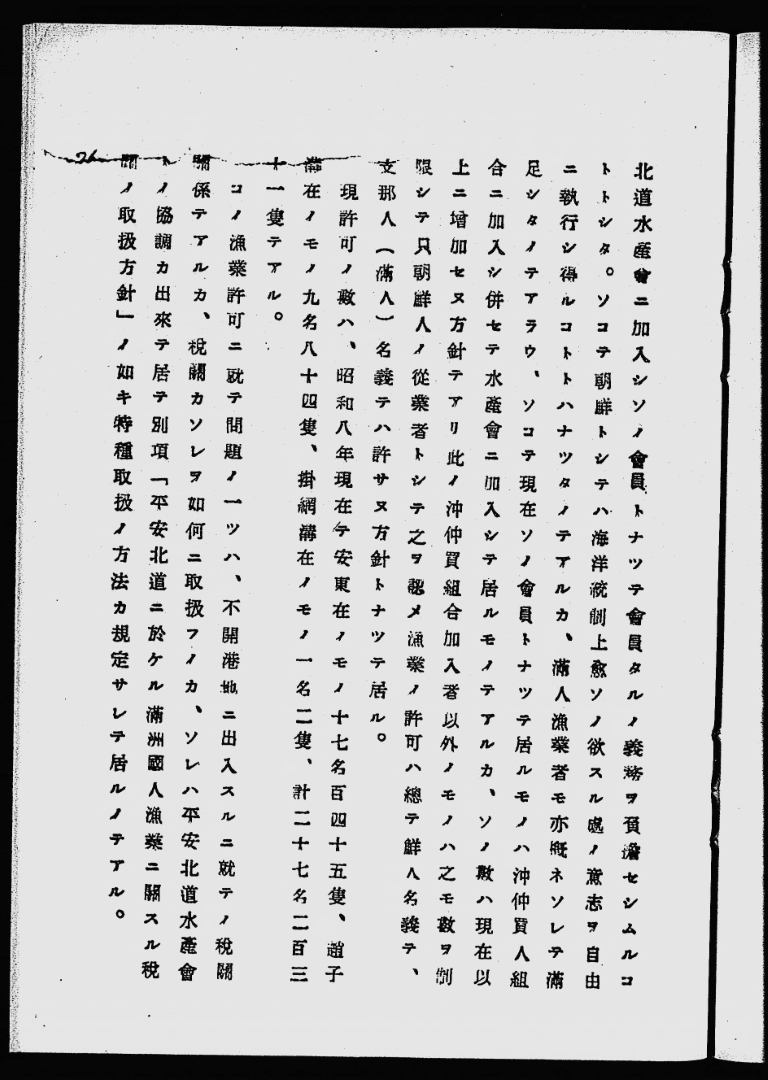 北道水產會ニ加入シソノ會員トナツテ會員タルノ義務ヲ負擔セシムルコ
トトシタ。ソコテ朝鮮トシテハ海洋統制上愈ソノ欲スル處ノ意志ヲ自由
ニ執行シ得ルコトトハナツタノテアルカ、滿人漁業者モ亦槪ネソレテ滿
足シタノテアラウ、ソコテ現在ソノ會員トナツテ居ルモノハ沖仲買人組
合ニ加入シ併セテ水產會ニ加入シテ居ルモノテアルカ、ソノ數ハ現在以
上ニ增加セヌ方針テアリ此ノ沖仲買組合加入者以外ノモノハ之モ數ヲ制
限シテ只朝鮮人ノ從業者トシテ之ヲ認メ漁業ノ許可ハ總テ鮮人名義テ、
支那人（滿人）名義テハ許サヌ方針トナツテ居ル。
現許可ノ數ハ、昭和八年現在テ安東在ノモノ十七名百四十五隻、趙子
溝在ノモノ九名八十四隻、掛網溝在ノモノ一名二隻、計二十七名二百三
十一隻テアル。
コノ漁業許可ニ就テ問題ノ一ツハ、不開港地ニ出入スルニ就テノ稅關
關係テアルカ、稅關カソレヲ如何ニ取扱フノカ、ソレハ平安北道水產會
トノ協調カ出來テ居テ別項「平安北道ニ於ケル滿洲國人漁業ニ關スル稅
關ノ取扱方針」ノ如キ特種取扱ノ方法カ規定サレテ居ルノテアル。
26